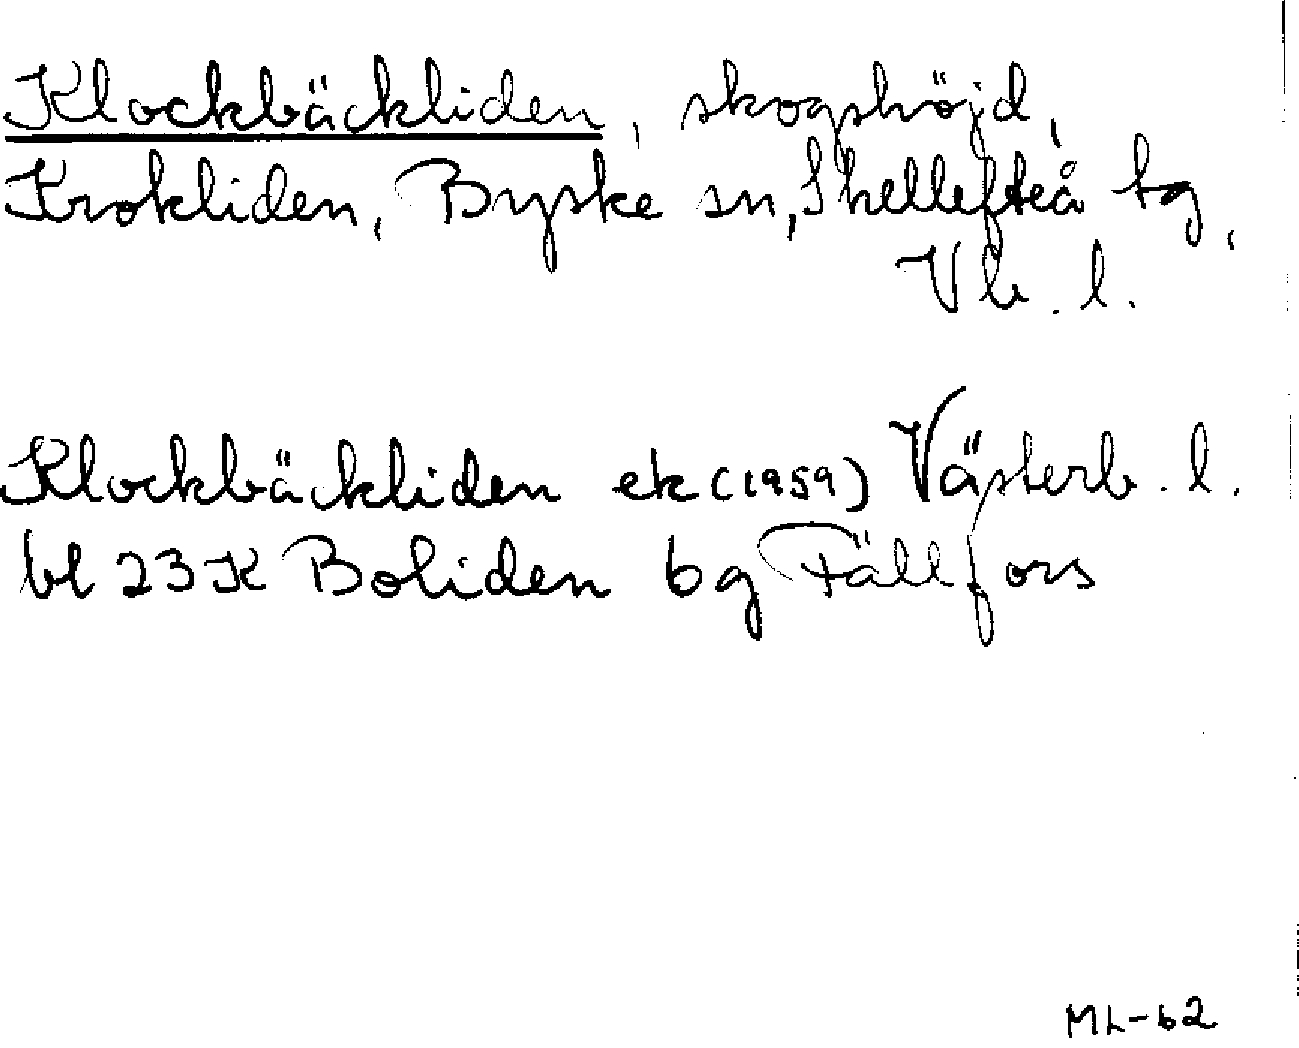 Klockbäckliden, skogshöjd,
Krokliden, Byske sn, Skellefteå tg,
Vb. l.
Klockbäckliden ek (1959) Västerb. l.
bl 23 K Boliden bg Fällfors
ML-62